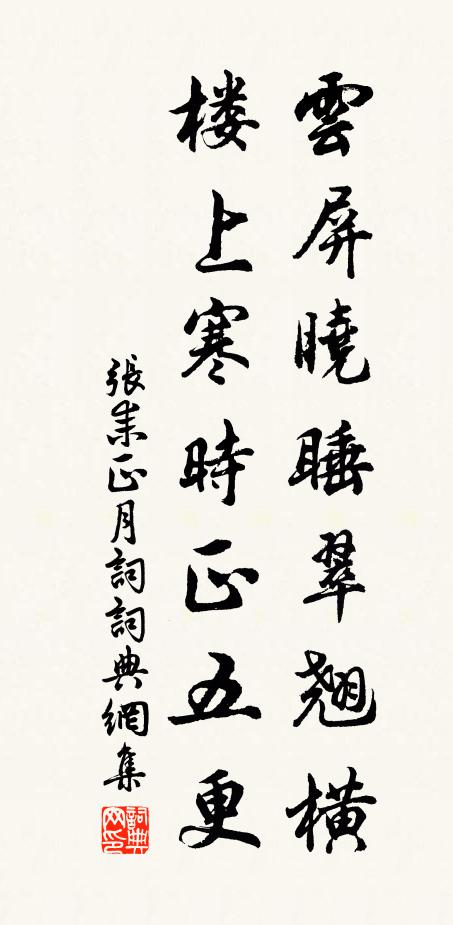 雲屏曉睡翠翹橫
楼上寒時正五更
張耒正月詞詞典網集
詞典网印